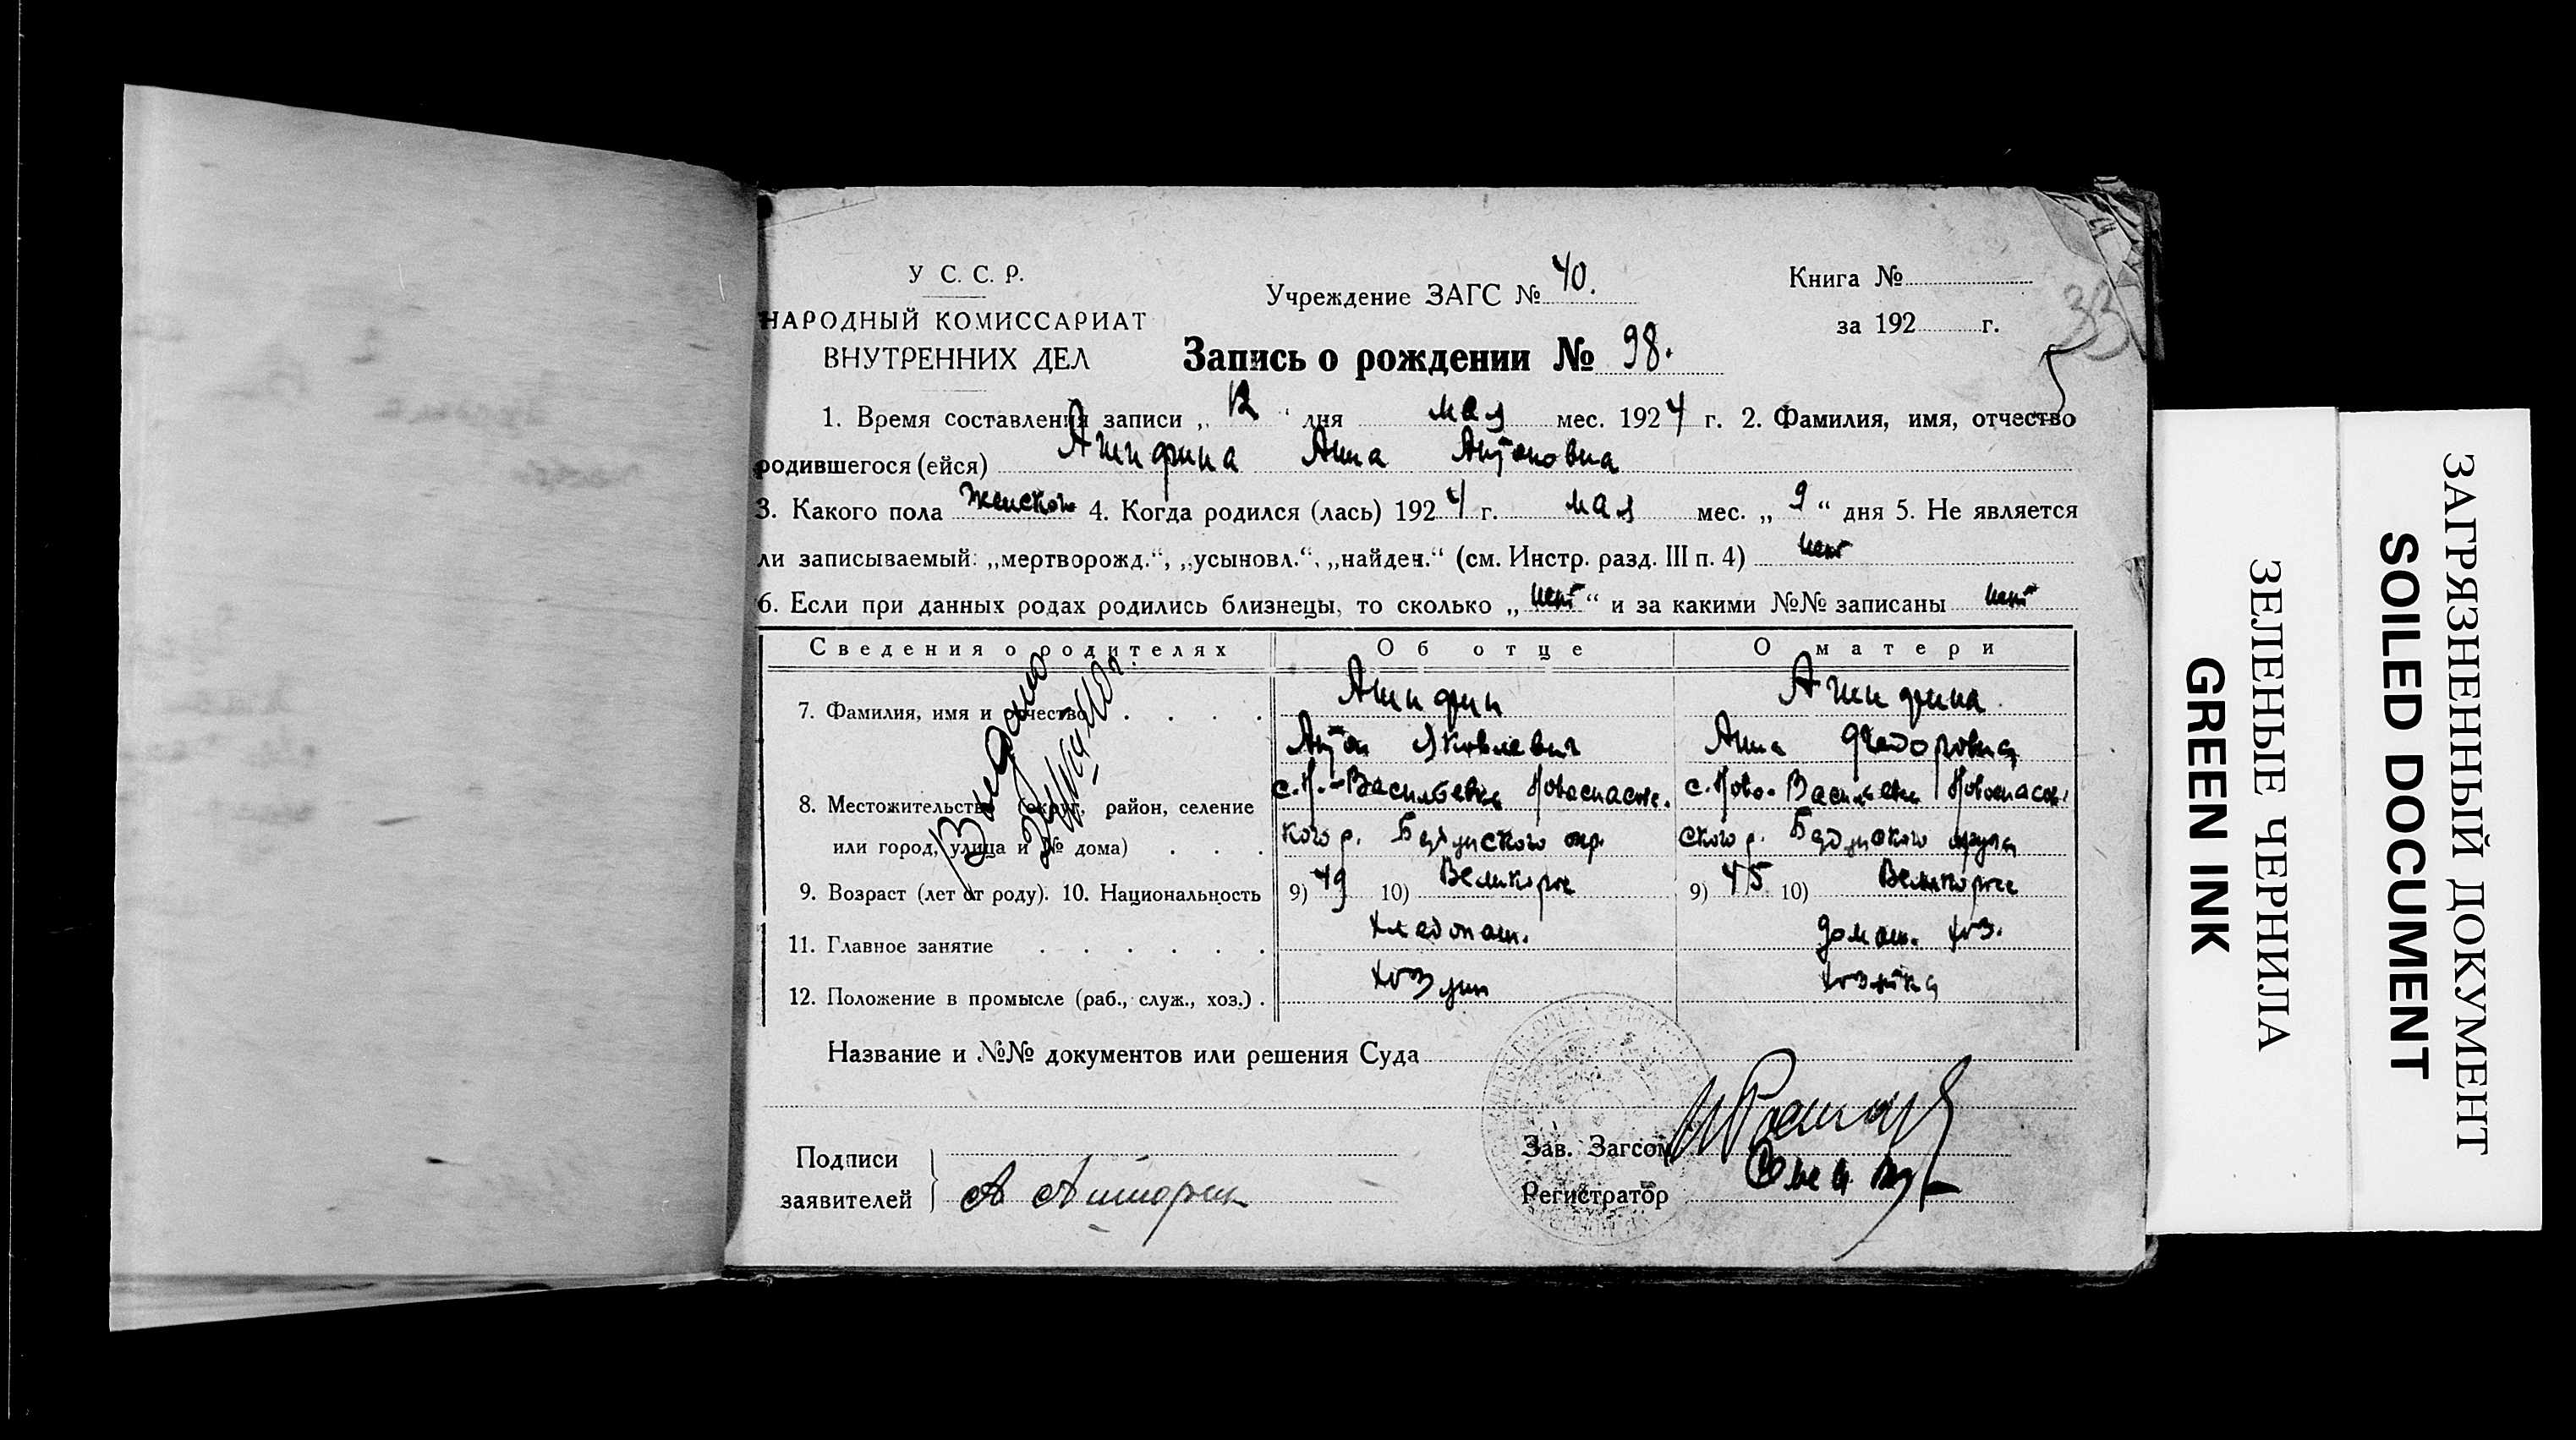 У С. С. Р.
НАРОДНЫЙ КОМИССАРИАТ
ВНУТРЕННИХ ДЕЛ
Учреждение ЗАГС № 40.
Книга №
за 192 г.
33
Запись о рождении № 98.
1. Время составления записи „ 12 “ дня мая мес. 1924 г. 2. Фамилия, имя, отчество
родившегося (ейся) Анна Антоновна
3. Какого пола женского 4. Когда родился (лась) 1924 г. мая мес. „ 9 “ дня 5. Не является
ли записываемый: „мертворожд.“, „усыновл.“, „найден.“ (см. Инстр. разд. III п. 4) нет
6. Если при данных родах родились близнецы, то сколько „ нет “ и за какими №№ записаны нет
Сведения о родителях Об отце О матери
7. Фамилия, имя и отчество
Антон Яковлевич Анна Федоровна
с. Н.-Васильевка Новоспасс- с. Ново-Васильевка Новоспас-
8. Местожительство (округ, район, селение
кого р. Бердянского окр. ского р. Бердянского округа
или город, улица и № дома)
9. Возраст (лет от роду). 10. Национальность 9) 49 10) Великорос 9) 45 10) Великорос
11. Главное занятие хлебопаш. домаш. хоз.
12. Положение в промысле (раб., служ., хоз.) хозяин хозяйка
Выдано
Название и №№ документов или решения Суда
Подписи
заявителей
Зав. Загсом
Регистратор
ЗЕЛЕНЫЕ ЧЕРНИЛА
GREEN INK
ЗАГРЯЗНЕННЫЙ ДОКУМЕНТ
SOILED DOCUMENT